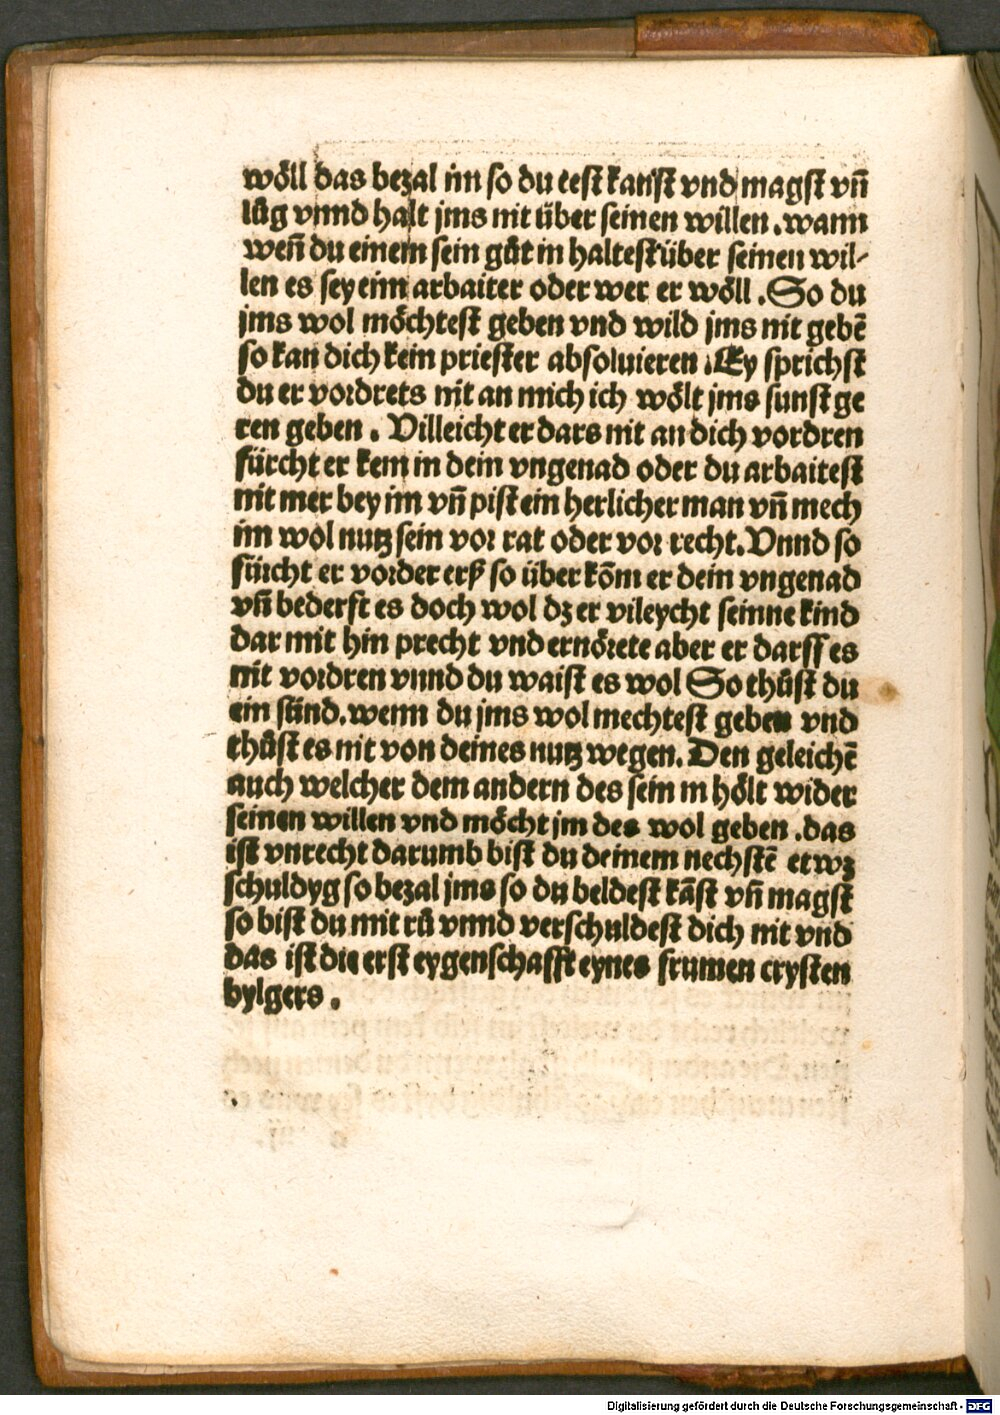 wöll das bezal im so du eest kanst vnd magst vn̄
lůg vnnd halt jms nit über seinen willen .wann
wen̄ du einem sein gůt in haltest über seinen wil-
len es sey eim arbaiter oder wer er wöll .So du
jms wol möchtest geben vnd wild jms nit gebē
so kan dich kein priester absoluieren .Ey sprichst
du er vordrets nit an mich ich wölt jms sunst ge
ren geben . Villeicht er dars nit an dich vordren
fürcht er kem in dein vngenad oder du arbaitest
nit mer bey im vn̄ pist ein herlicher man vn̄ mech
im wol nutz sein vor rat oder vor recht. Vnnd so
fürcht er vorder erß so über kōm er dein vngenad
vn̄ bederft es doch wol dz er vileycht seinne kind
dar mit hin precht vnd ernörete aber er darff es
nit vordren vnnd du waist es wol So thůst du
ein sünd. wenn du jms wol mechtest geben vnd
thůst es nit von deines nutz wegen. Den geleichē
auch welcher dem andern des sein in hölt wider
seinen willen vnd möcht jm des wol geben .das
ist vnrecht darumb bist du deinem nechstē etwz
schuldyg so bezal jms so du beldest kāst vn̄ magst
so bist du mit rů vnnd verschuldest dich nit vnd
das ist die erst eygenschafft eynes frumen crysten
bylgers .
Digitalisierung gefördert durch die Deutsche Forschungsgemeinschaft - DFG